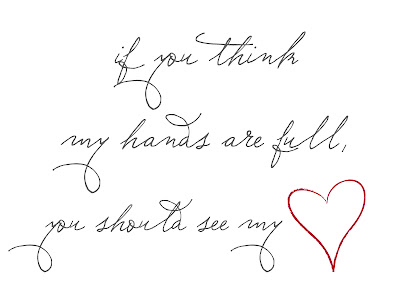 if you think
my hands are full,
you should see my